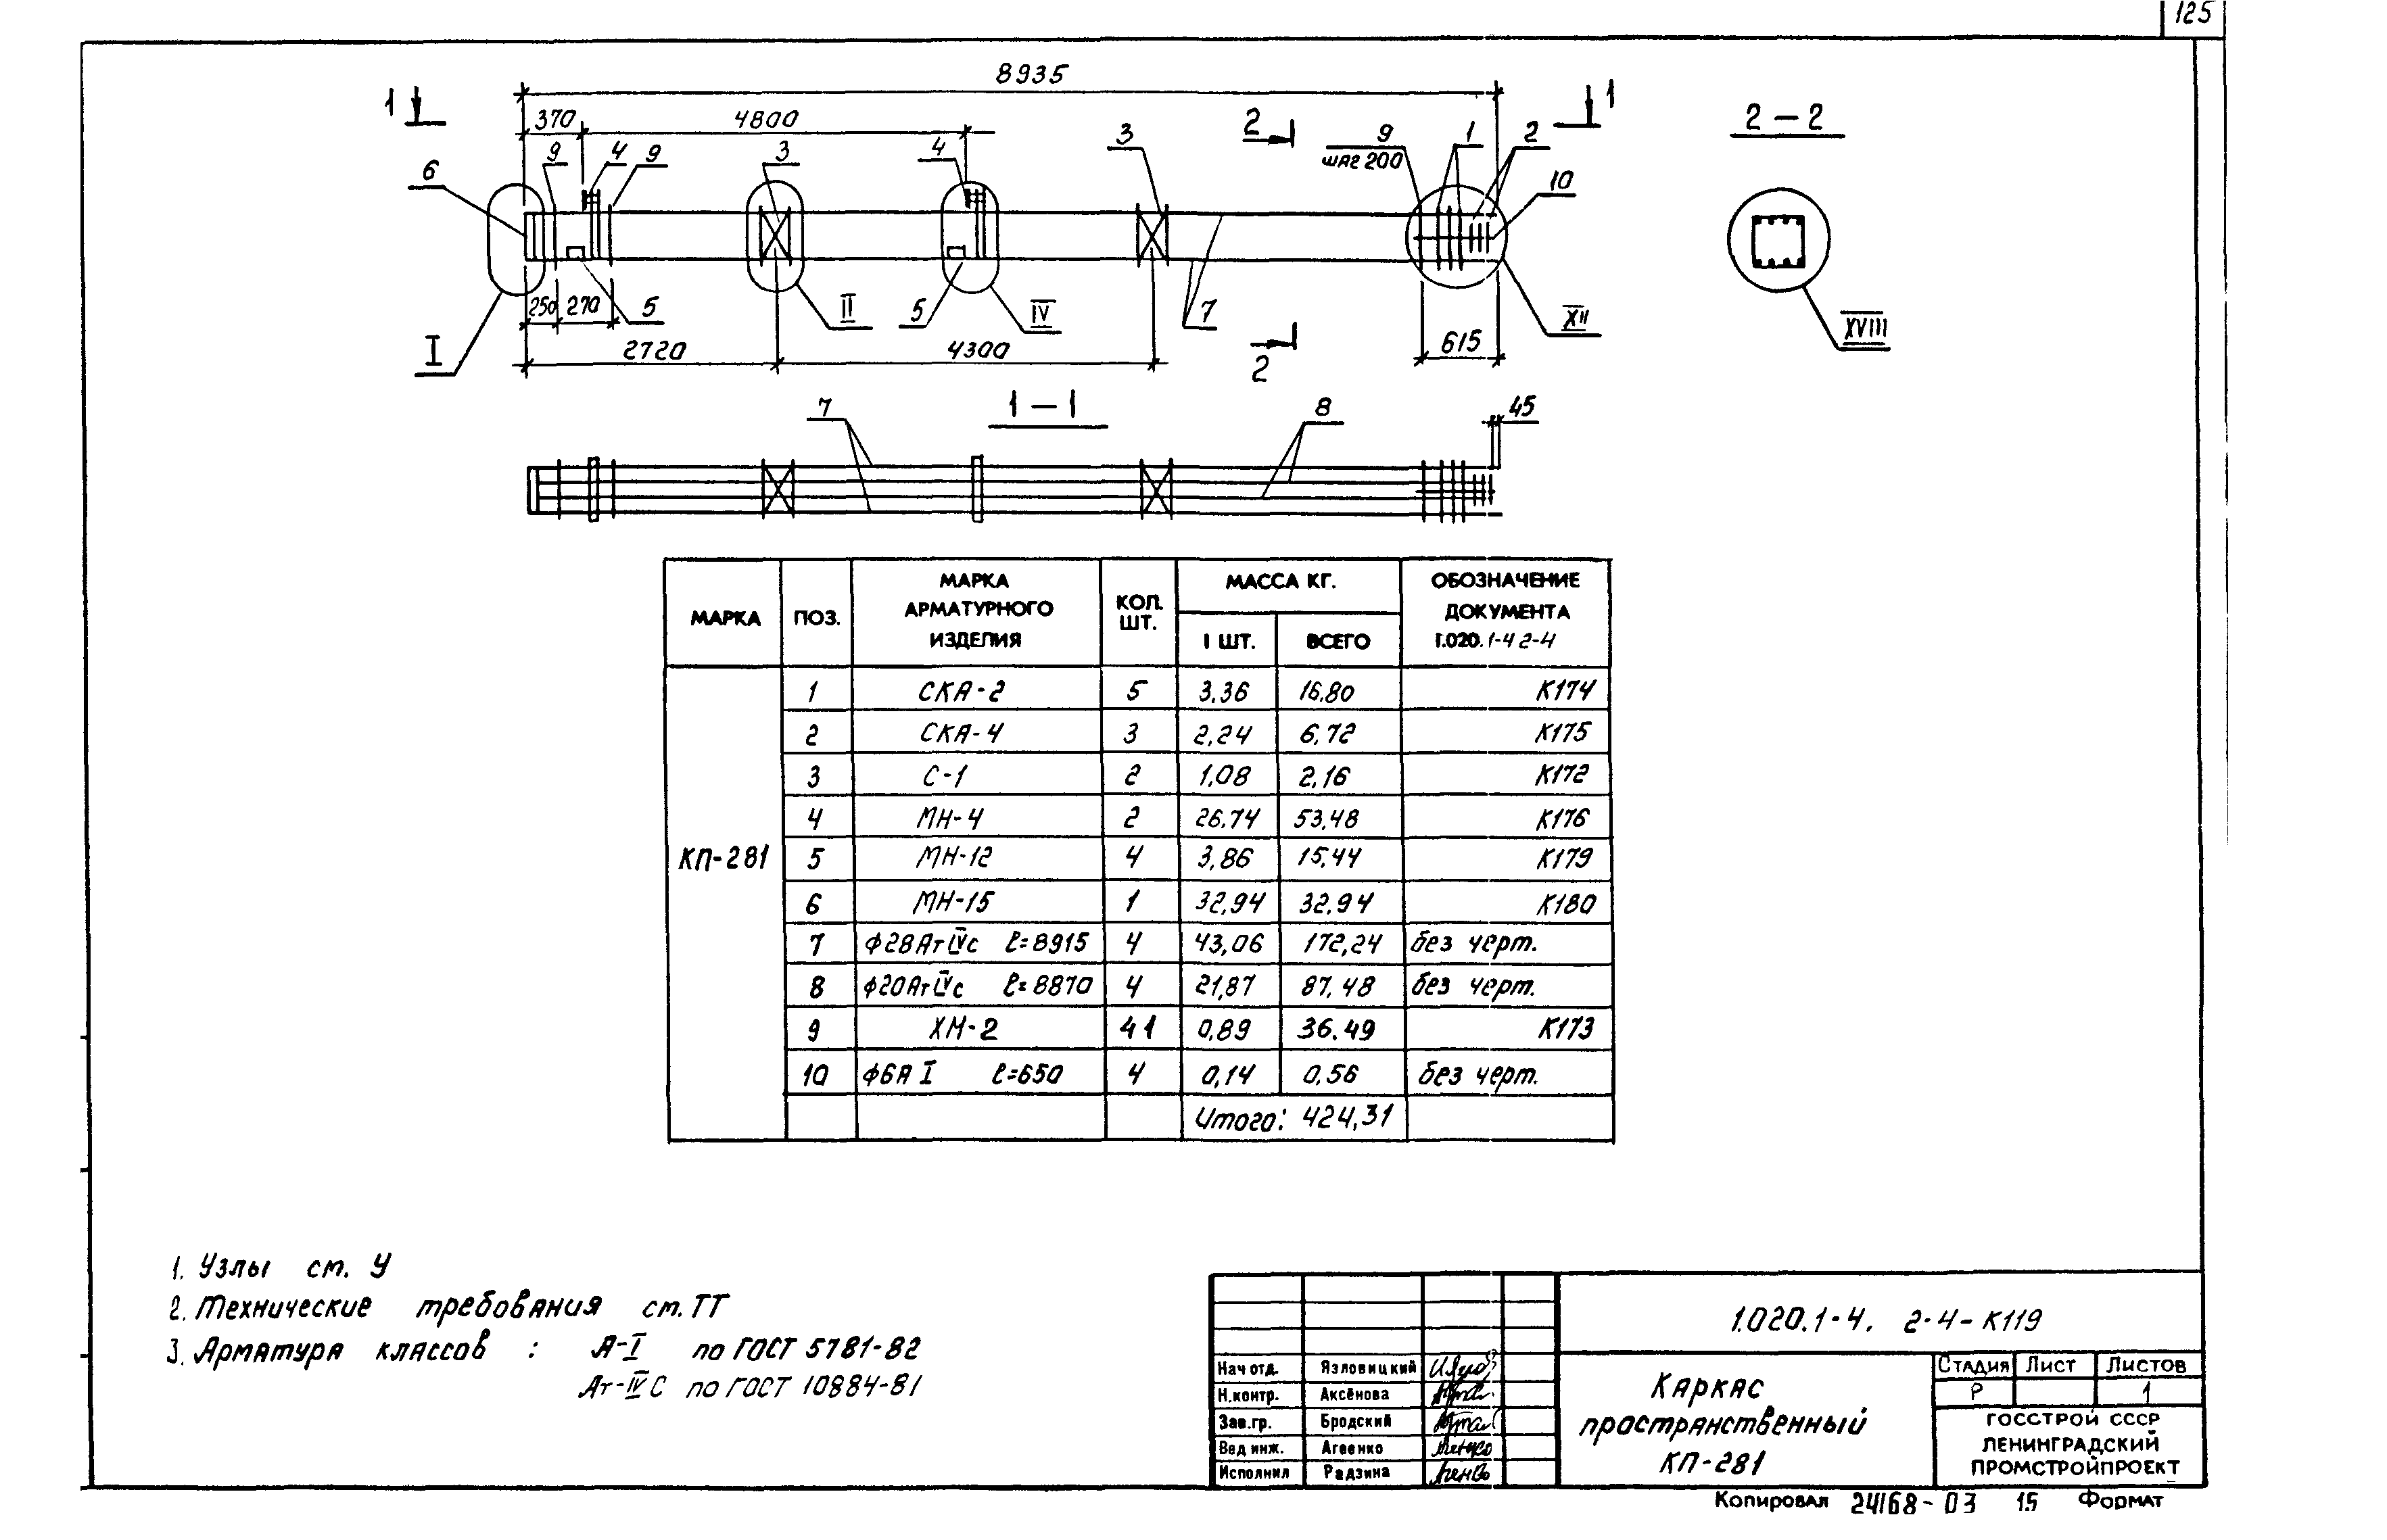 125
8935
1 1
370 4800 2 2 – 2
9 4 9 3 4 3 9 1 2
шаг 200
6 10
250 270 5 II 5 IV 7 XII XVIII
I 2720 4300 2 615
7 1 – 1 8 45
МАРКА ПОЗ. МАРКА АРМАТУРНОГО ИЗДЕЛИЯ КОЛ. ШТ. МАССА КГ. ОБОЗНАЧЕНИЕ ДОКУМЕНТА 1.020.1-4 2-4
1 ШТ. ВСЕГО
КП-281
1 СКА-2 5 3,36 16,80 К174
2 СКА-4 3 2,24 6,72 К175
3 С-1 2 1,08 2,16 К172
4 МН-4 2 26,74 53,48 К176
5 МН-12 4 3,86 15,44 К179
6 МН-15 1 32,94 32,94 К180
7 ф28АтIVс ℓ=8915 4 43,06 172,24 без черт.
8 ф20АтIVс ℓ=8870 4 21,87 87,48 без черт.
9 ХМ-2 41 0,89 36.49 К173
10 ф6А I ℓ=650 4 0,14 0,56 без черт.
Итого: 424,31
1. Узлы см. У
2. Технические требования см. ТТ
3. Арматура классов : А-I по ГОСТ 5781-82
Ат-IVС по ГОСТ 10884-81
1.020.1-4. 2-4-К119
Нач отд. Язловицкий
Н.контр. Аксёнова
Зав.гр. Бродский
Вед инж. Агеенко
Исполнил Радзина
Каркас
пространственный
КП-281
Стадия Лист Листов
Р 1
ГОССТРОЙ СССР
ЛЕНИНГРАДСКИЙ
ПРОМСТРОЙПРОЕКТ
Копировал 24168-03 15 Формат